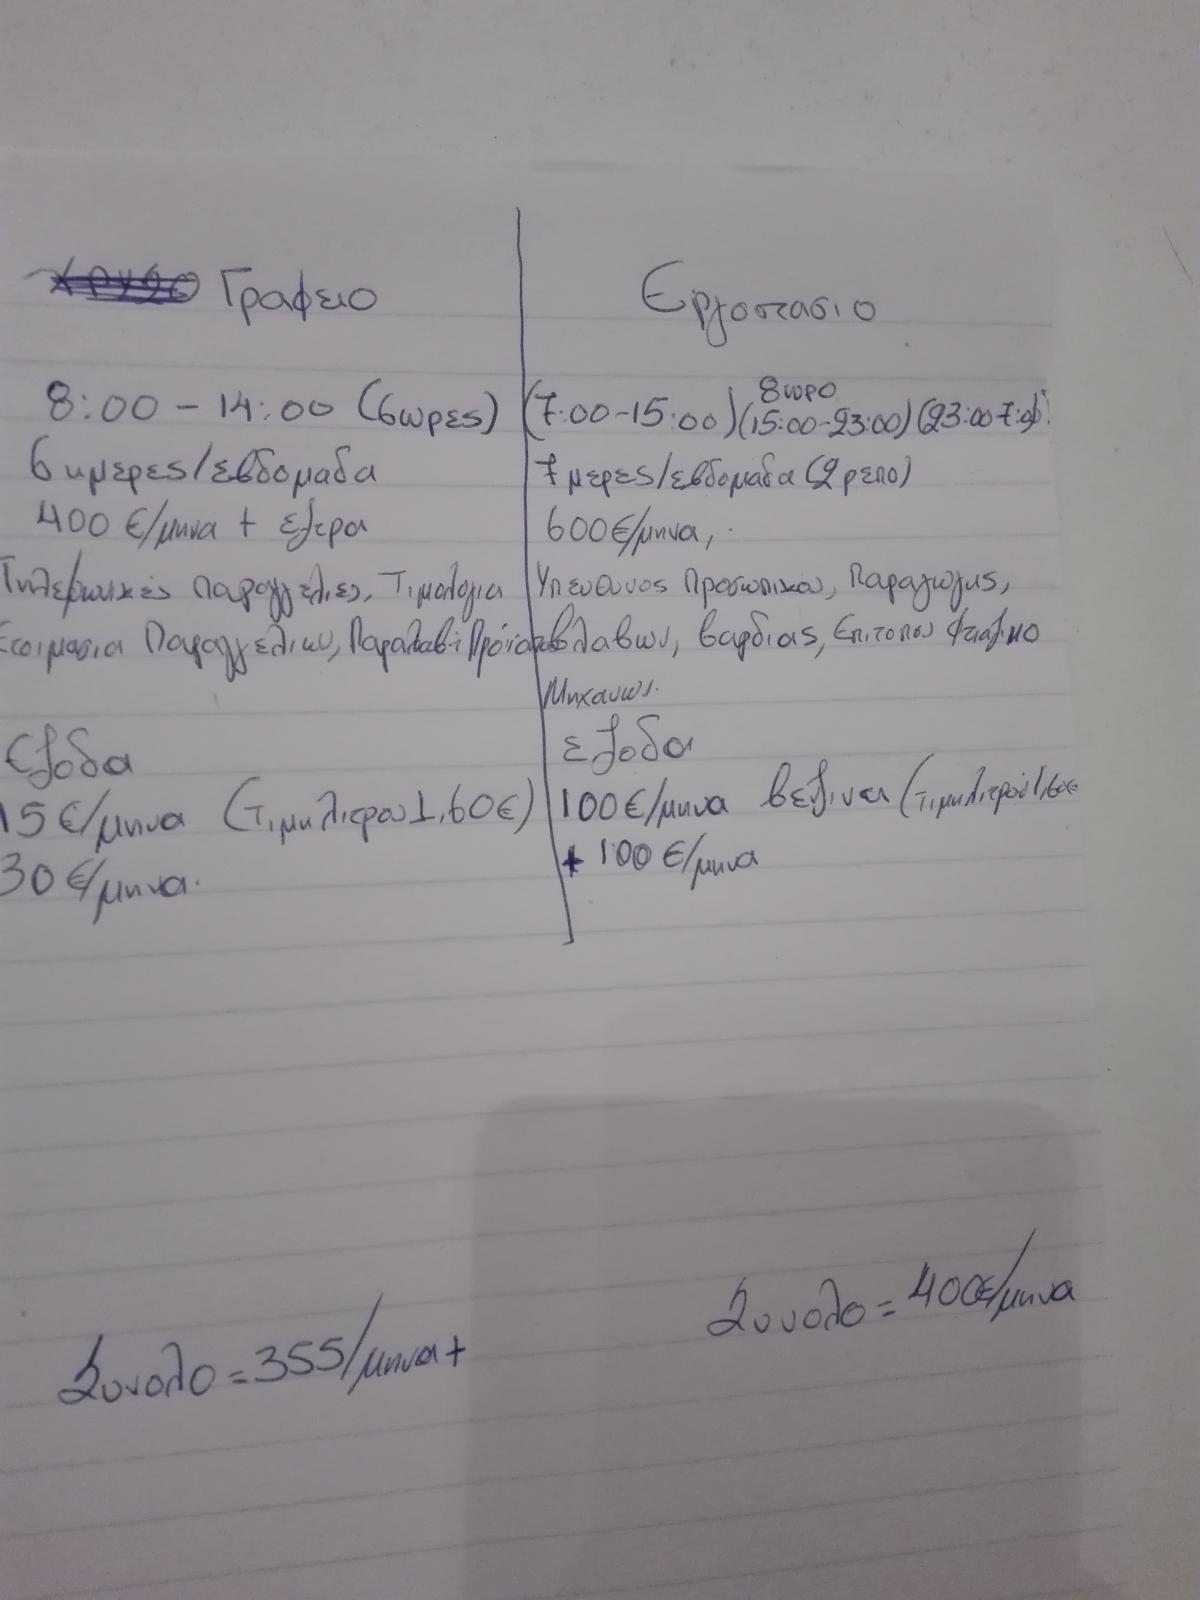 Γραφειο
8:00 - 14:00 (6ωρες)
6 ημερες/εβδομαδα
400 €/μηνα + εξτρα
Τηλεφωνικές παραγγελιες, Τιμολογια
Ετοιμασια Παραγγελιων, Παραλαβή
Εξοδα
15 €/μηνα (Τιμη λιτρου 1,60€)
30 €/μηνα.
Συνολο = 355/μηνα +
Εργοστασιο
8ωρο
(7:00-15:00) (15:00-23:00) (23:00 7:00)
7 μερες/εβδομαδα (2 ρεπο)
600€/μηνα,
Υπευθυνος Προσωπικου, Παραγωγης,
βλαβων, βαρδιας, Επιτοπου Φτιαξιμο
Μηχανων.
εξοδα
100€/μηνα βενζινα (τιμη λιτρου 1,60€
+ 100 €/μηνα
Συνολο = 400€/μηνα